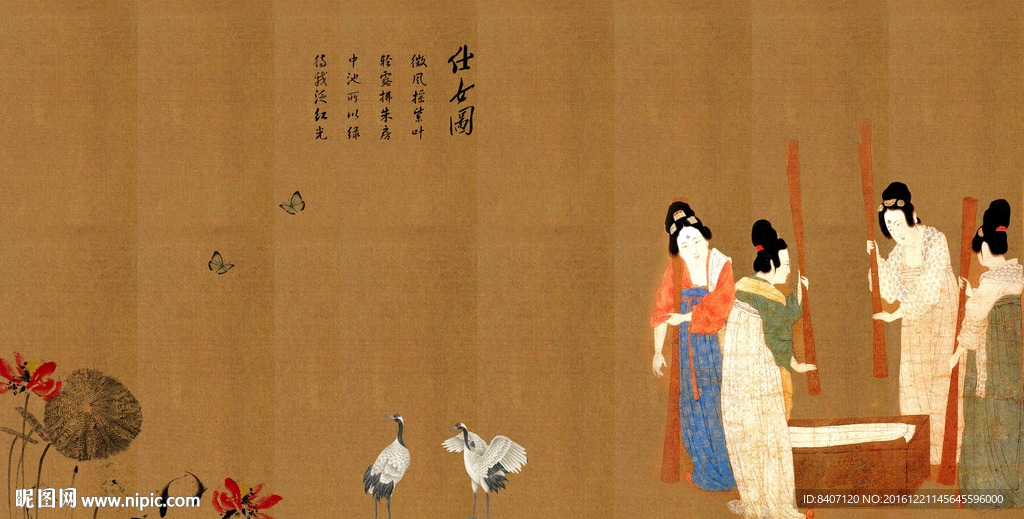 仕女圖
微风摇紫叶
轻露拂朱房
中池所以绿
待我泛红光
昵图网 www.nipic.com
ID:8407120 NO:20161221145645596000